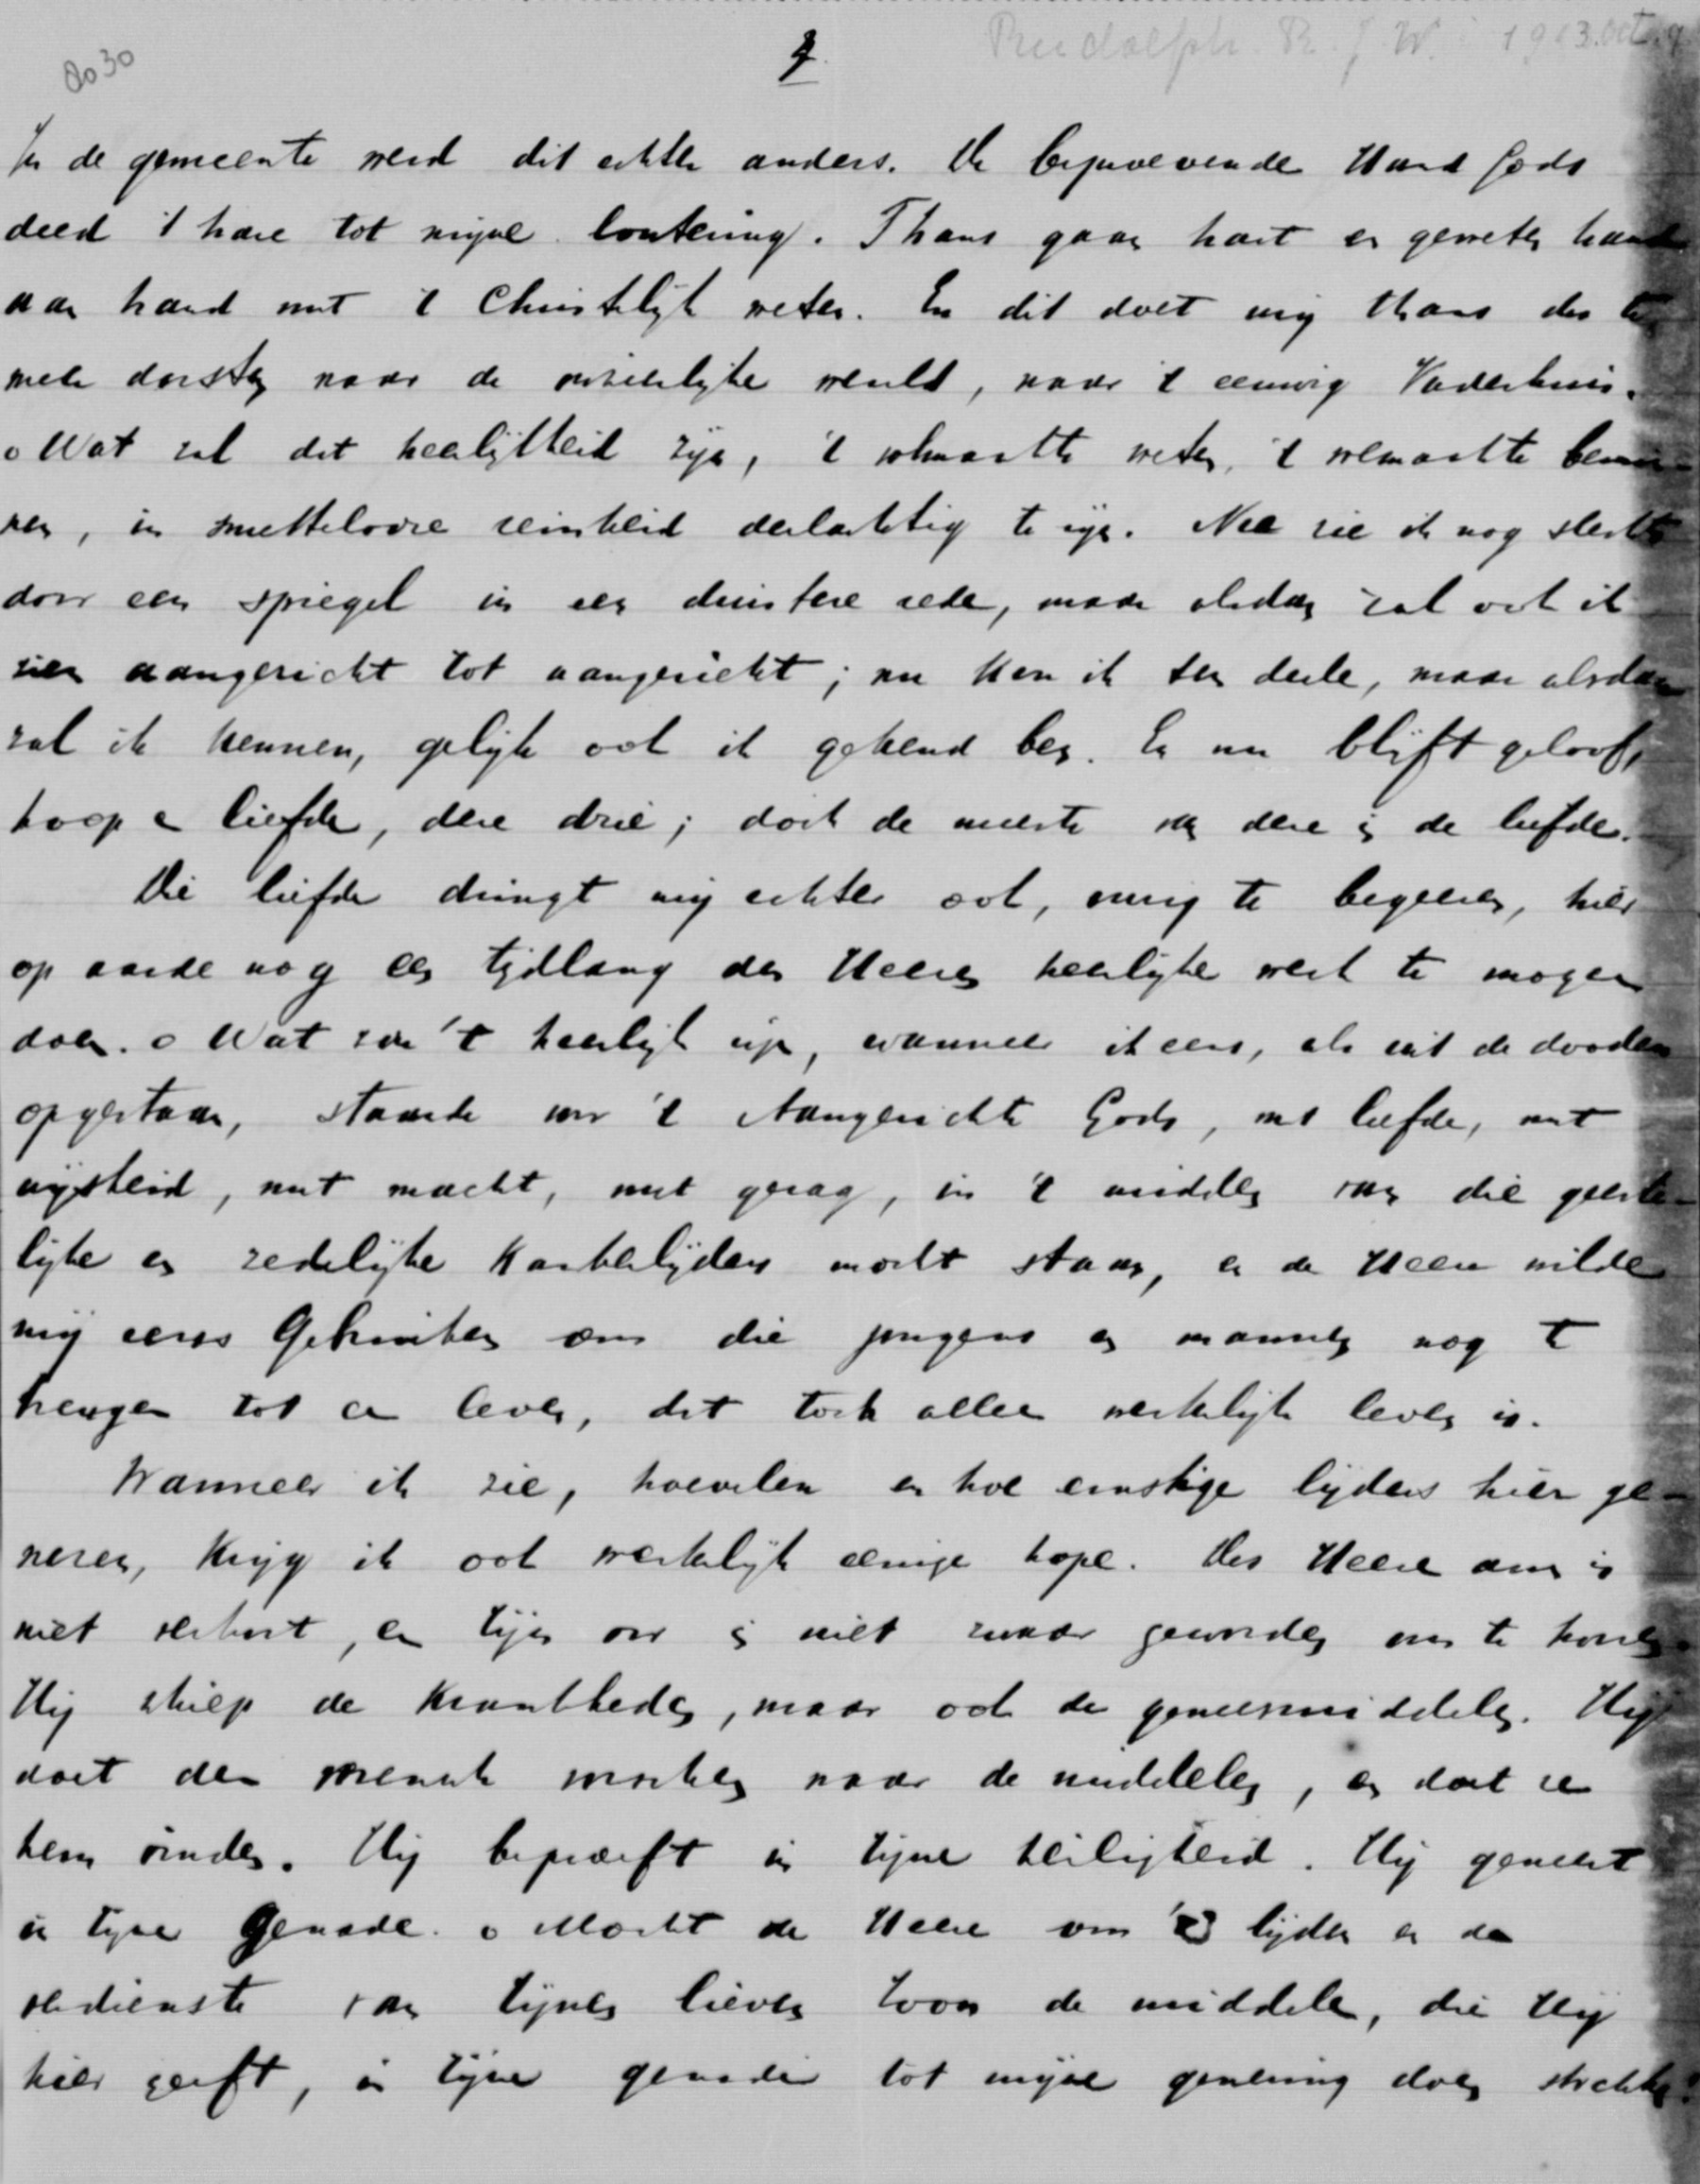 do 30
7
Rudolph. R. J. W. 1913. Oct. 9
In de gemeente werd dit echter anders. De beproevende Hand Gods
deed 't hare tot mijne loutering. Thans gaan hart en geweten hand
aan hand met 't Christelijk weten. En dit doet mij thans des te
meer dorsten naar de onzienlijke wereld, naar 't eeuwig Vaderhuis.
o Wat zal dat heerlijkheid zijn, 't volmaakte weten, 't volmaakte bemin-
nen, in smettelooze reinheid deelachtig te zijn. Nu zie ik nog slechts
door een spiegel in een duistere rede, maar alsdan zal ook ik
zien aangezicht tot aangezicht; nu ken ik ten deele, maar alsdan
zal ik kennen, gelijk ook ik gekend ben. En nu blijft geloof,
hoop en liefde, deze drie; doch de meeste van deze is de liefde.
Die liefde dringt mij echter ook, innig te begeeren, hier
op aarde nog een tijdlang des Heeren heerlijke werk te mogen
doen. o Wat zou 't heerlijk zijn, wanneer ik eens, als uit de dooden
opgestaan, staande voor 't Aangezichte Gods, met liefde, met
wijsheid, met macht, met gezag, in 't midden van die geeste-
lijke en zedelijke krankelijders mocht staan, en de Heere wilde
mij eens gebruiken om die jongens en mannen nog te
brengen tot een leven, dat toch alleen werkelijk leven is.
Wanneer ik zie, hoevelen en hoe ernstige lijders hier ge-
nezen, krijg ik ook werkelijk eenige hope. Des Heeren arm is
niet verkort, en zijn oor is niet zwaar geworden om te hooren.
Hij schiep de krankheden, maar ook de geneesmiddelen. Hij
doet den mensch zoeken naar de middelen, en doet ze
hem vinden. Hij beproeft in zijne heiligheid. Hij geneest
in zijne Genade. o Mocht de Heere om 't lijden en de
verdienste van zijnen lieven Zoon de middelen, die Hij
hier geeft, in zijne genade tot mijne genezing doen strekken!